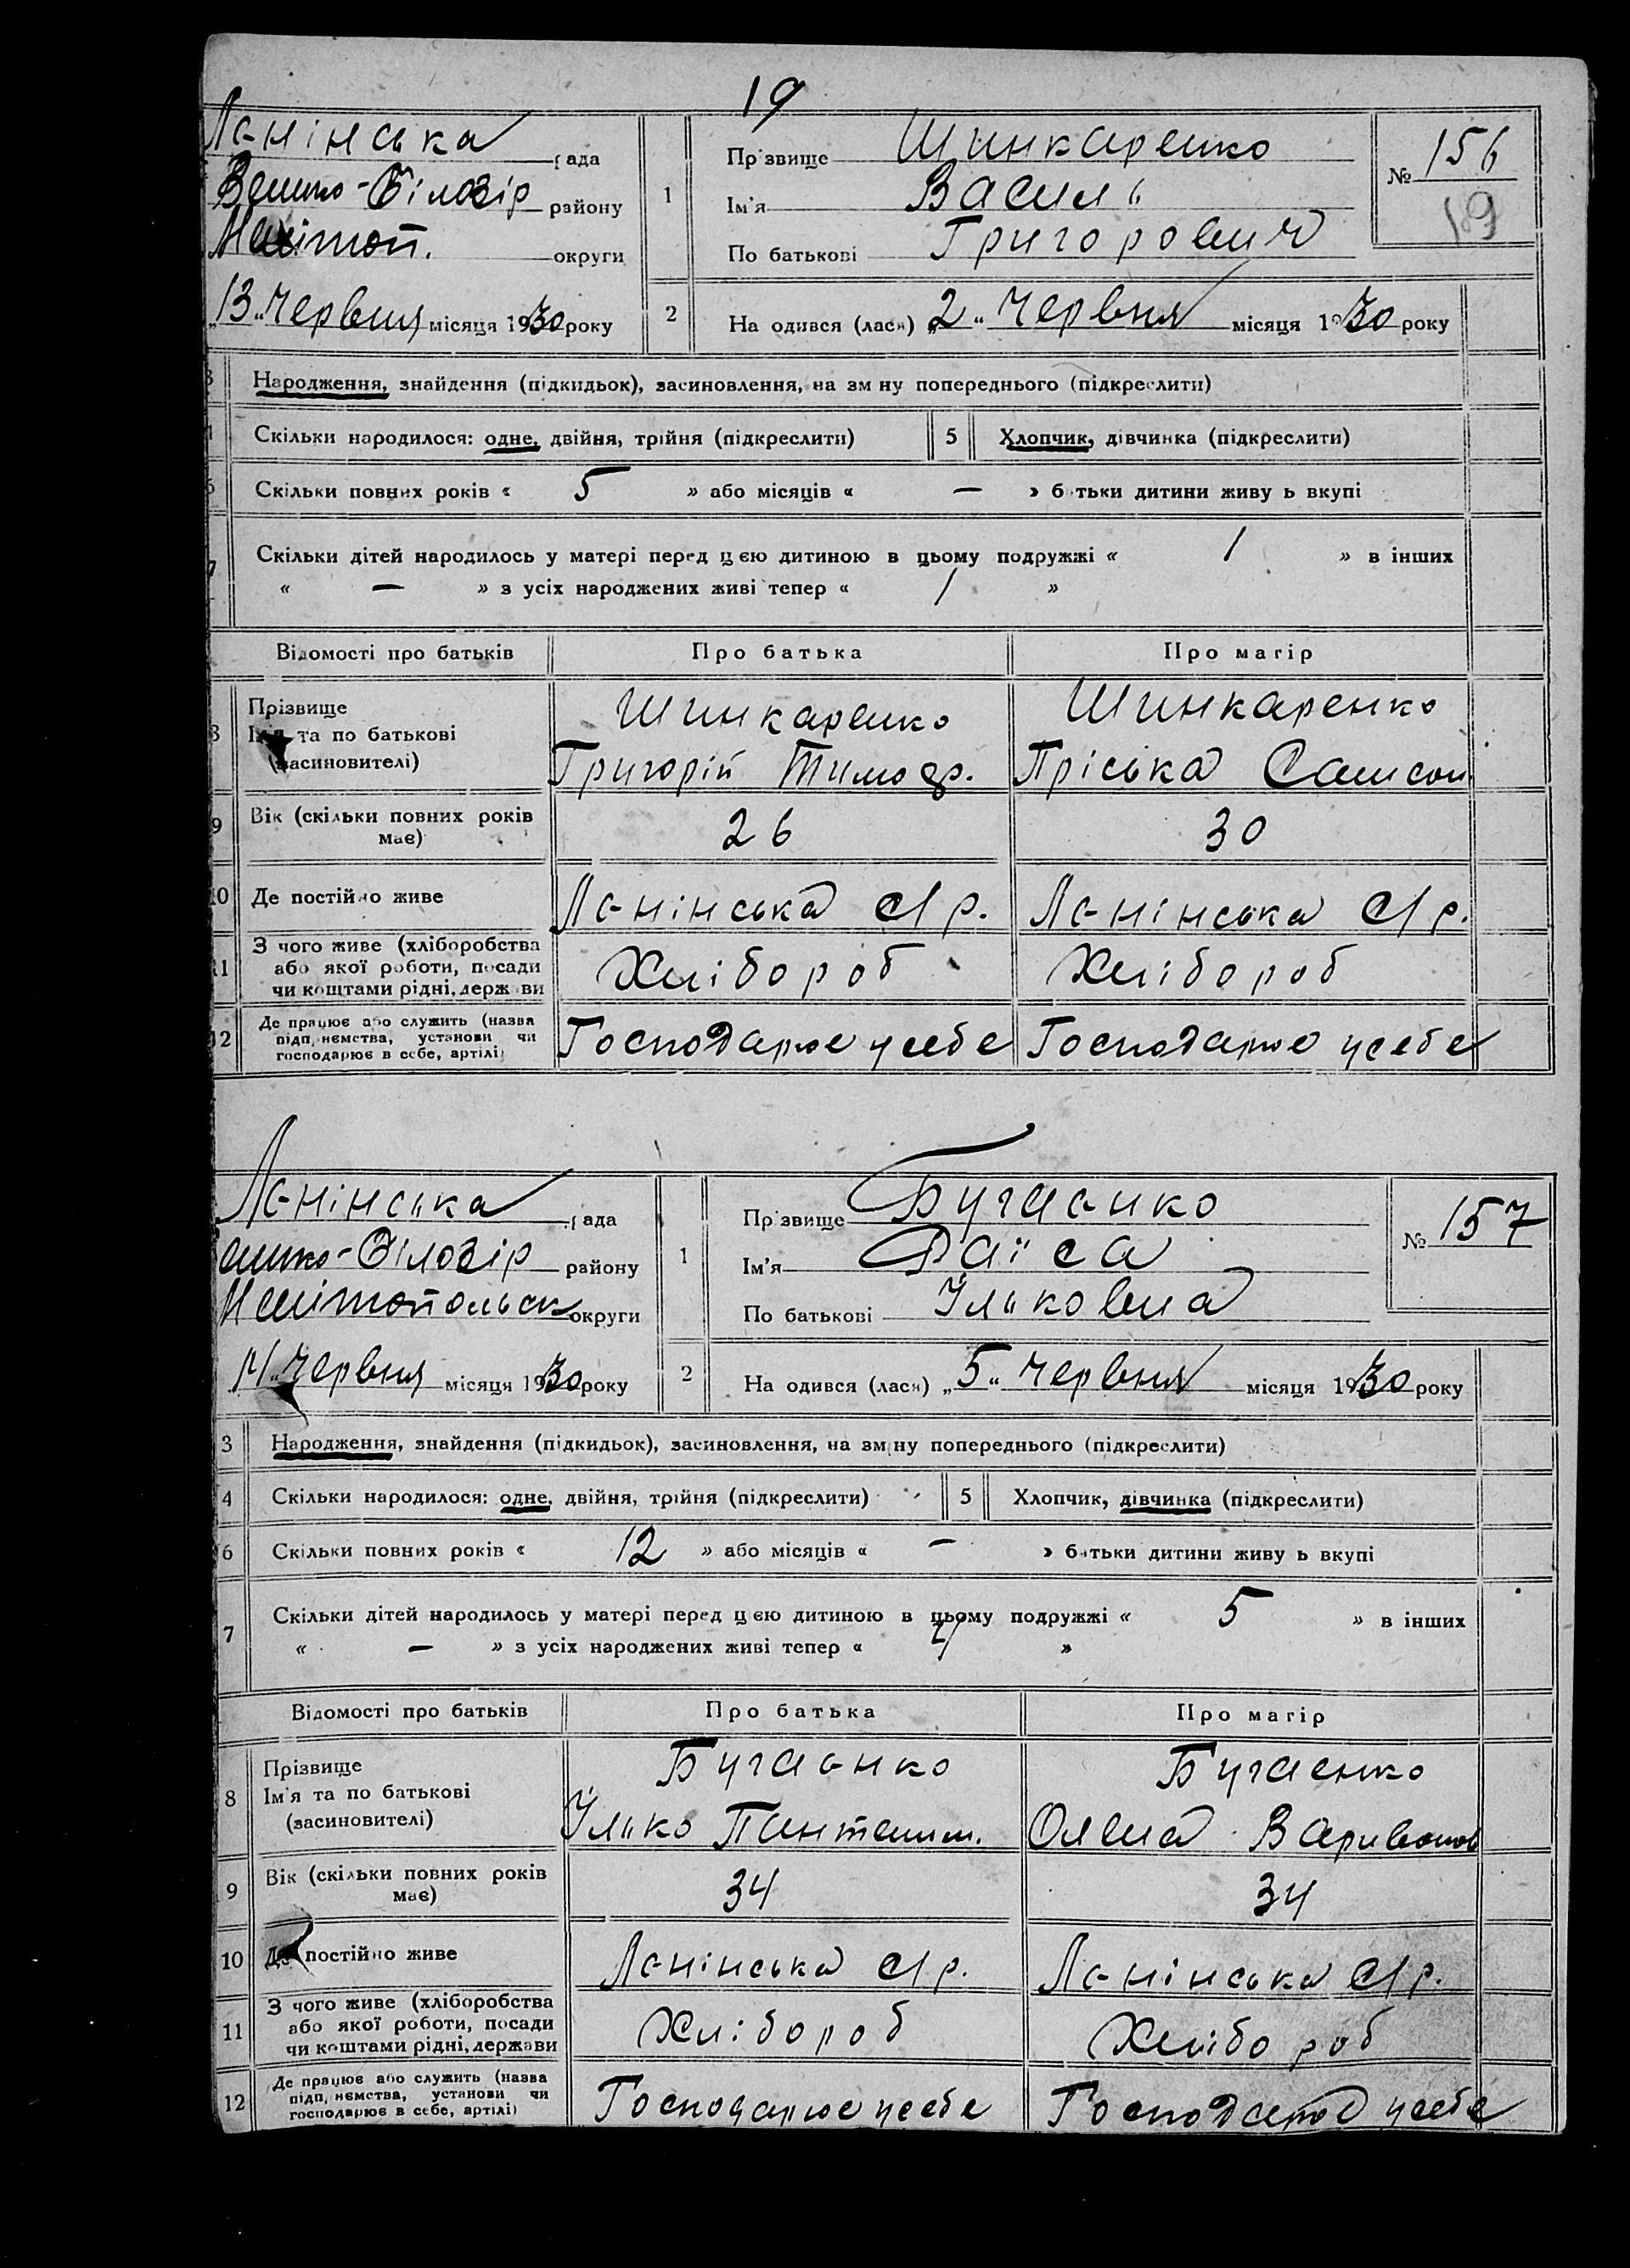 19
Ленінська рада
Велико-Білозір району
Мелітоп. округи
„13„ Червня місяця 1930 року
1
Прізвище Шинкаренко
Ім'я Василь
По батькові Григорович
№ 156
19
2 На одився (лася) „2„ Червня місяця 1930 року
Народження, знайдення (підкидьок), засиновлення, на зміну попереднього (підкреслити)
Скільки народилося: одне, двійня, трійня (підкреслити) 5 Хлопчик, дівчинка (підкреслити)
Скільки повних років « 5 » або місяців « — » батьки дитини живу ь вкупі
7 Скільки дітей народилось у матері перед цією дитиною в цьому подружжі « 1 » в інших
« — » з усіх народжених живі тепер « 1 »
Відомості про батьків Про батька Про матір
8 Прізвище
Ім'я та по батькові
(засиновителі)
Шинкаренко
Григорій Тимоф.
Шинкаренко
Пріська Самсон
9 Вік (скільки повних років
має)
26 30
10 Де постійно живе Ленінська с/р. Ленінська с/р.
11 З чого живе (хліборобства
або якої роботи, посади
чи коштами рідні, держави
Хлібороб Хлібороб
12 Де працює або служить (назва
підп, иємства, установи чи
господарює в себе, артілі)
Господарює у себе Господарює у себе
Ленінська рада
елико-Білозір району
Мелітопольськ округи
14„ Червня місяця 1930 року
1
Прізвище Бугаенко
Ім'я Раїса
По батькові Ільковна
№ 157
2 На одився (лася) „5„ Червня місяця 1930 року
3 Народження, знайдення (підкидьок), засиновлення, на зміну попереднього (підкреслити)
4 Скільки народилося: одне, двійня, трійня (підкреслити) 5 Хлопчик, дівчинка (підкреслити)
6 Скільки повних років « 12 » або місяців « — » батьки дитини живу ь вкупі
7 Скільки дітей народилось у матері перед цією дитиною в цьому подружжі « 5 » в інших
« — » з усіх народжених живі тепер « 4 »
Відомості про батьків Про батька Про матір
8 Прізвище
Ім'я та по батькові
(засиновителі)
Бугаенко
Ілько Пантелим.
Бугаенко
Олена Варивонов
9 Вік (скільки повних років
має)
34 34
10 Де постійно живе Ленінська с/р. Ленінська с/р.
11 З чого живе (хліборобства
або якої роботи, посади
чи коштами рідні, держави
Хлібороб Хлібороб
12 Де працює або служить (назва
підп, иємства, установи чи
господарює в себе, артілі)
Господарює у себе Господарює у себе